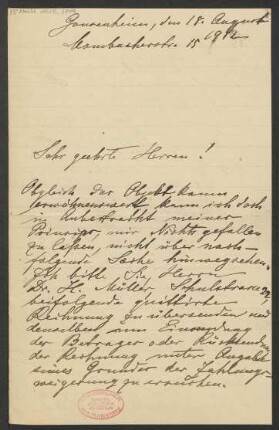 Gonsenheim, den 18. August
Mombacherstr. 15 1912
Sehr geehrte Herren!
Obgleich das Objekt kaum
erwähnenswert kann ich doch
in Anbetracht meiner
Prinzips, mir Nichts gefallen
zu lassen, nicht über nach-
folgende Sache hinwegsehen.
Ich bitte Sie Herrn
Dr. H. Müller
beifolgende quittirte
Rechnung zu übersenden und
denselben um Einsendung
des Betrages oder Rücksendung
der Rechnung unter Angabe
eines Grundes der Zahlungs-
weigerung zu ersuchen.